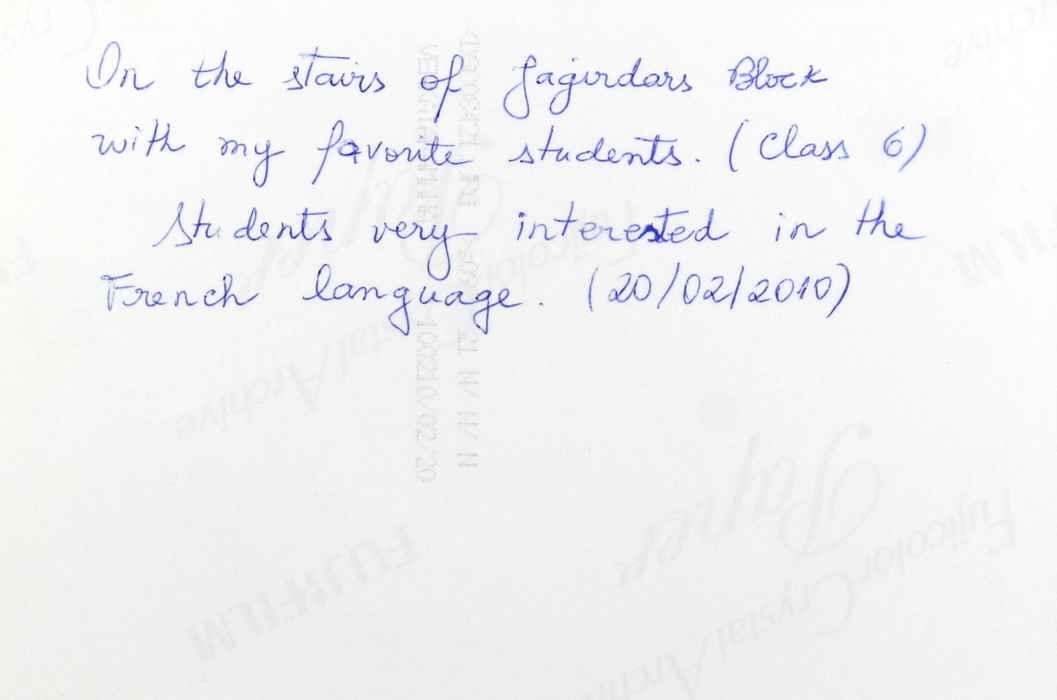 On the stairs of Jagirdars Block
with my favorite students. (Class 6)
Students very interested in the
French language. (20/02/2010)
FUJIFILM
Fujicolor Crystal Archive
Paper